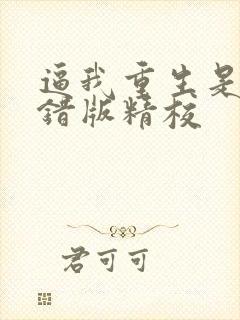 逼我重生是
错版精校
君可可